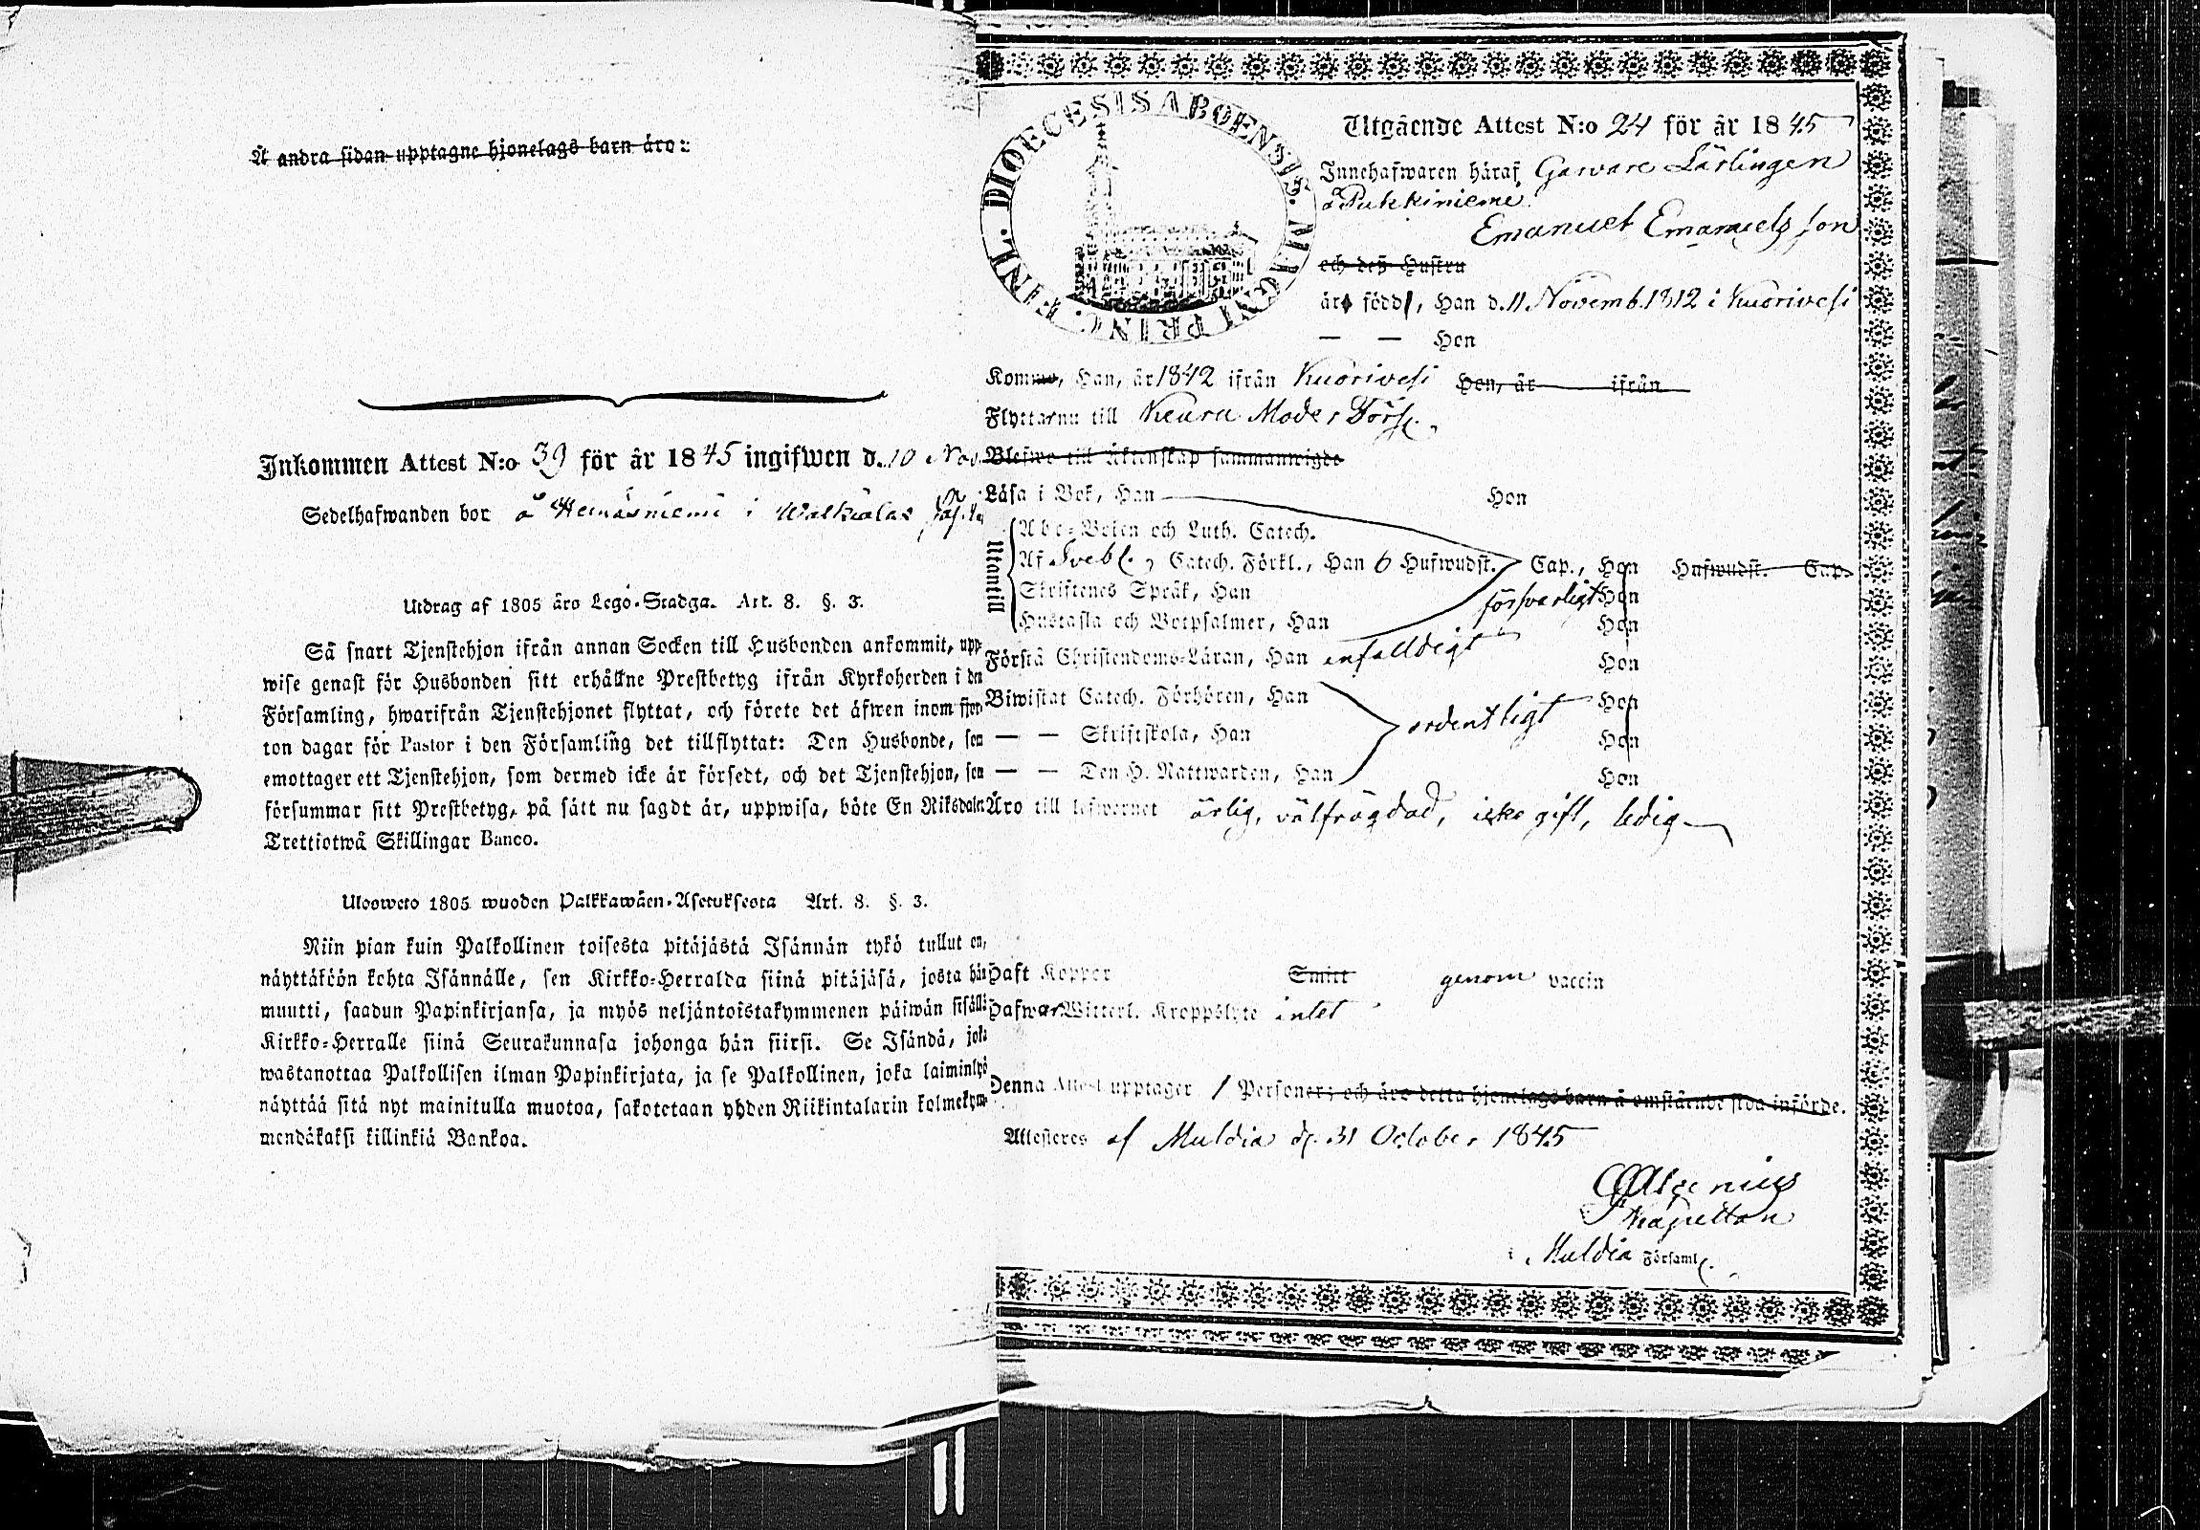 Å andra sidan upptagne hjonelags barn äro:
Inkommen Attest N:o 39 för år 1845 ingifwen d. 10 Nov
Sedelhafwanden bor å Heinäsniemi i
Utdrag af 1805 års Lego-Stadga. Art. 8. §. 3.
Så snart Tjenstehjon ifrån annan Socken till Husbonden ankommit, upp-
wise genast för Husbonden sitt erhållne Prestbetyg ifrån Kyrkoherden i den
Församling, hwarifrån Tjenstehjonet flyttat, och förete det äfwen inom fjor-
ton dagar för Pastor i den Församling det tillflyttat: Den Husbonde, som
emottager ett Tjenstehjon, som dermed icke är försedt, och det Tjenstehjon, som
försummar sitt Prestbetyg, på sätt nu sagdt är, uppwisa, böte En Riksdaler
Trettiotwå Skillingar Banco.
Ulosweto 1805 wuoden Palkkawäen-Asetuksesta Art. 8. §. 3.
Niin pian kuin Palkollinen toisesta pitäjästä Isännän tykö tullut on,
näyttäköön kohta Isännälle, sen Kirkko-Herralda siinä pitäjäsä, josta hän
muutti, saadun Papinkirjansa, ja myös neljäntoistakymmenen päiwän sisällä
Kirkko-Herralle siinä Seurakunnasa johonga hän siirsi. Se Isändä, joka
wastanottaa Palkollisen ilman Papinkirjata, ja se Palkollinen, joka laiminlyö
näyttää sitä nyt mainitulla muotoa, sakotetaan yhden Riikintalarin kolmekym-
mendäkaksi killinkiä Bankoa.
DIOECESIS ABOENSIS. MAGNI PRINC. FINL.
Utgående Attest N:o 24 för år 1845
Innehafwaren häraf Garvare Lärlingen
å Pukkiniemi
Emanuel Emanuelsson
och deß Hustru
äro född, Han d. 11 Novemb. 1812 i Kuorivesi
— — Hon
Kommo, Han, år 1842 ifrån Kuorivesi Hon, år ifrån
Flyttar nu till Keuru Moder Förs.
Blefwo till Äktenskap sammanwigde
Läsa i Bok, Han Hon
Utantill
Abc-Boken och Luth. Catech.
Af Svebl. Catech. Förkl., Han 6 Hufwudst. Cap., Hon Hufwudst. Cap.
Skriftenes Språk, Han försvarligt Hon
Hustafla och Botpsalmer, Han Hon
Förstå Christendoms-Läran, Han enfalldigt Hon
Biwistat Catech. Förhören, Han Hon
— — Skriftskola, Han ordentligt Hon
— — Den H. Nattwarden, Han Hon
Äro till lefwernet ärlig, välfrägdad, icke gift, ledig
Haft Koppor Smitt genom vaccin
Hafwer Witterl. Kroppslyte intet
Denna Attest upptager 1 Personer; och äro detta hjonelags barn å omstående sida införde.
Attesteres af Muldia d. 31 October 1845
Kapellan
i Muldia Församl.